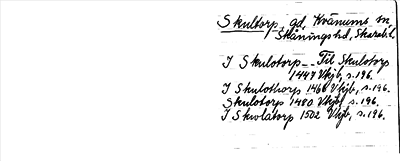 Skultorp, gd, Kvänums sn,
Skånings hd, Skarab. l.
I Skulotorp -- Til Skulotorp
1447 Vkjb, s. 196.
I Skulothorp 1460 Vkjb, s. 196.
Skulotorp 1480 Vkjb, s. 196.
I Skwlatorp 1502 Vkjb, s. 196.